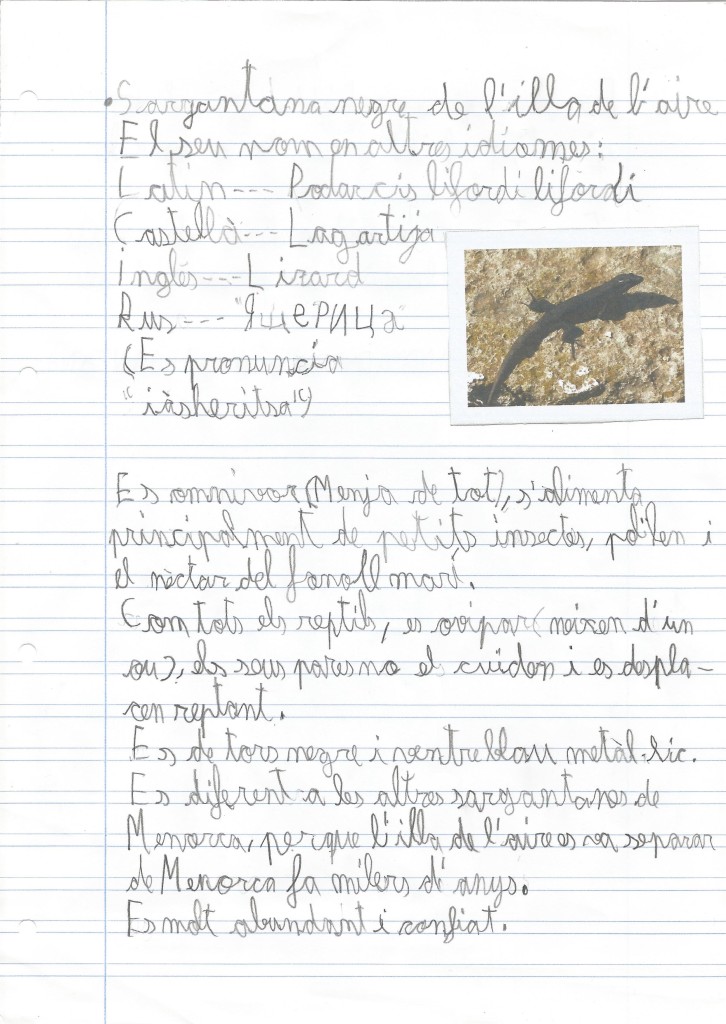 •Sargantana negre de l'illa de l'aire
El seu nom en altres idiomes:
Latin--- Podarcis lifordi lifordi
Castellà--- Lagartija
inglés--- Lizard
Rus--- "ЯщЕРИЦа"
(Es pronuncia
"iàsheritsa")
Es omnivor (Menja de tot), s'alimenta
principalment de petits insectes, pol·len i
el nèctar del fonoll marí.
Com tots els reptils, es ovipar (neixen d'un
ou), els seus pares no el cuïdon i es despla-
cen reptant.
Es de tors negre i ventre blau metàl·lic.
Es diferent a les altres sargantanes de
Menorca, perque l'illa de l'aire es va separar
de Menorca fa milers d'anys.
Es molt abundant i confiat.